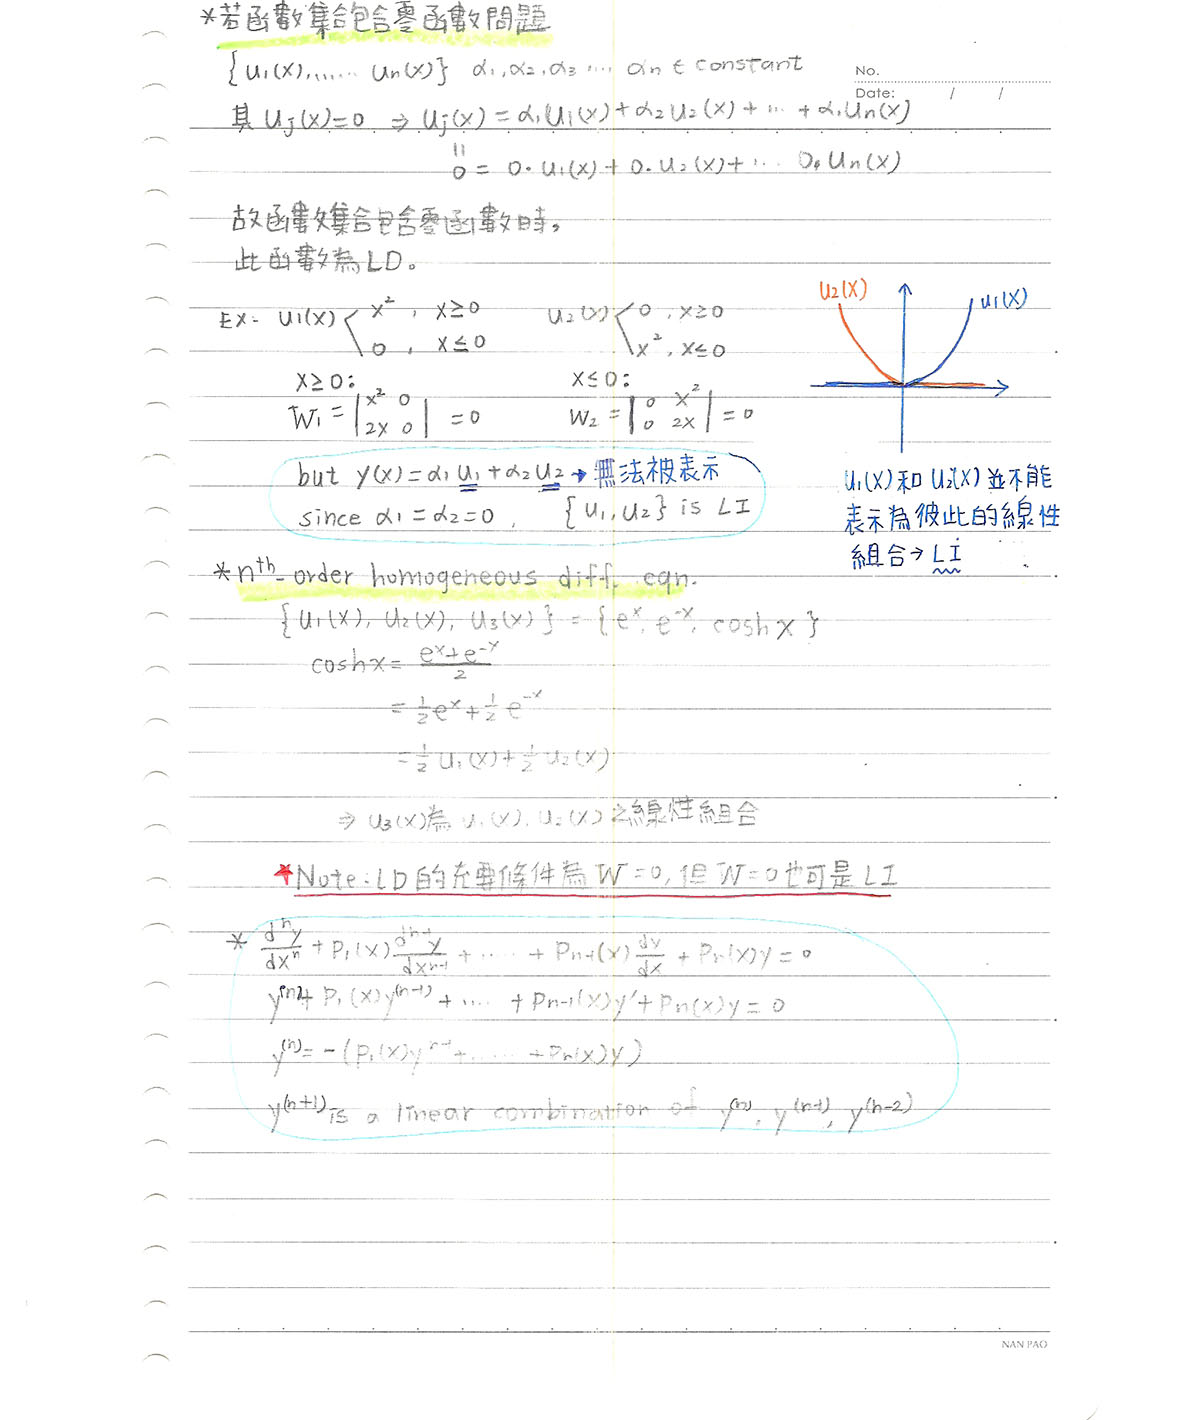 *若函數集合包含零函數問題
{u₁(x),...... un(x)} α₁,α₂,α₃ .... αn ∈ constant
No.
Date: / /
其 uj(x)=0 ⇒ uj(x) = α₁u₁(x)+α₂u₂(x)+ ... + α₁un(x)
=
0 = 0·u₁(x)+0·u₂(x)+ ... 0·un(x)
故函數集合包含零函數時,
此函數為LD。
EX: u₁(x) x², x≥0 u₂(x) 0, x≥0
0, x≤0 x², x≤0
u₂(x) u₁(x)
x≥0: x≤0:
W₁ = |x² 0| = 0 W₂ = |0 x²| = 0
|2x 0| |0 2x|
but y(x)=α₁u₁+α₂u₂→無法被表示
since α₁=α₂=0, {u₁,u₂} is LI
u₁(x)和u₂(x)並不能
表示為彼此的線性
組合→LI
*nth-order homogeneous diff. eqn.
{u₁(x), u₂(x), u₃(x)} = {eˣ, e⁻ˣ, cosh x}
cosh x = (eˣ+e⁻ˣ)/2
= ½eˣ+½e⁻ˣ
= ½u₁(x)+½u₂(x)
⇒ u₃(x)為u₁(x), u₂(x)之線性組合
★Note: LD的充要條件為W=0, 但W=0也可是LI
* dⁿy/dxⁿ + P₁(x) dⁿ⁻¹y/dxⁿ⁻¹ + ..... + Pn-1(x) dy/dx + Pn(x)y = 0
y⁽ⁿ⁾+ P₁(x)y⁽ⁿ⁻¹⁾ + .... + Pn-1(x)y'+Pn(x)y = 0
y⁽ⁿ⁾ = -(P₁(x)yⁿ⁻¹+...... +Pn(x)y)
y⁽ⁿ⁺¹⁾ is a linear combination of y⁽ⁿ⁾, y⁽ⁿ⁻¹⁾, y⁽ⁿ⁻²⁾
NAN PAO